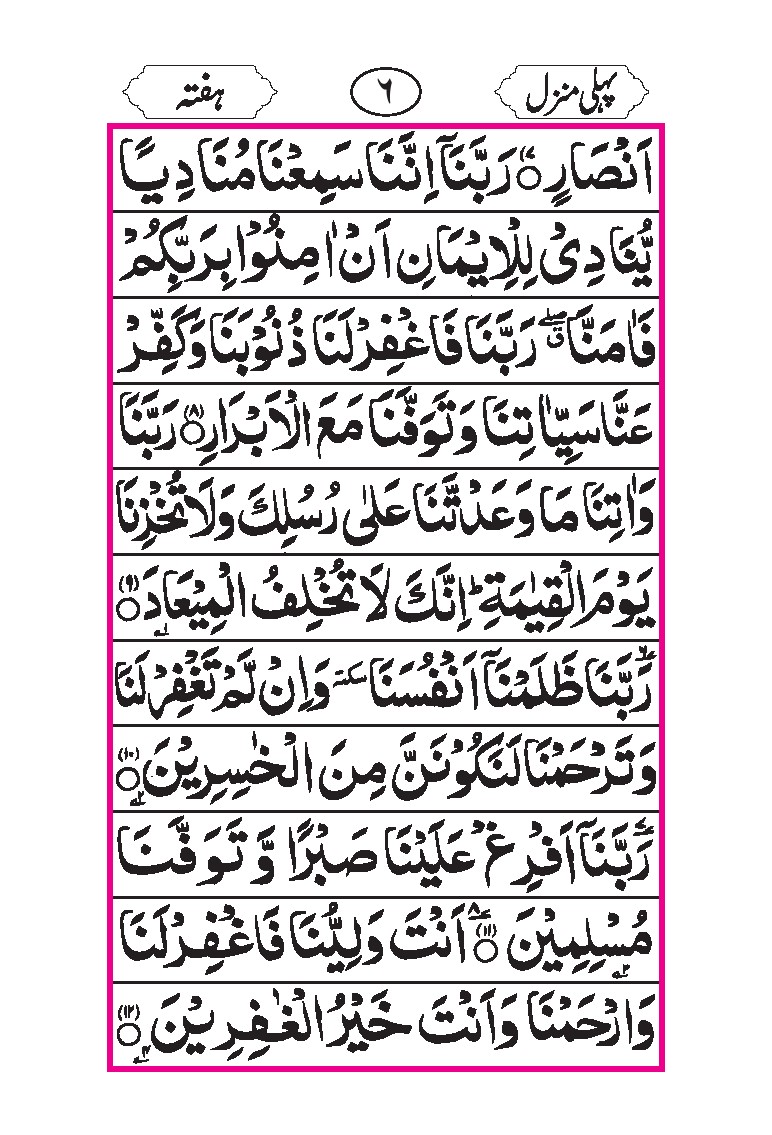 پہلی منزل ٦ ہفتہ
اَنْصَارٍ ﴿٧﴾ رَبَّنَاۤ اِنَّنَا سَمِعْنَا مُنَادِیًا
یُّنَادِیْ لِلْاِیْمَانِ اَنْ اٰمِنُوْا بِرَبِّكُمْ
فَاٰمَنَّا ۖق رَبَّنَا فَاغْفِرْلَنَا ذُنُوْبَنَا وَكَفِّرْ
عَنَّا سَیِّاٰتِنَا وَتَوَفَّنَا مَعَ الْاَبْرَارِ ﴿٨﴾ رَبَّنَا
وَاٰتِنَا مَا وَعَدْتَّنَا عَلٰی رُسُلِكَ وَلَا تُخْزِنَا
یَوْمَ الْقِیٰمَةِ ؕ اِنَّكَ لَا تُخْلِفُ الْمِیْعَادَ ﴿٩﴾
رَبَّنَا ظَلَمْنَاۤ اَنْفُسَنَا سكتة وَاِنْ لَّمْ تَغْفِرْلَنَا
وَتَرْحَمْنَا لَنَكُوْنَنَّ مِنَ الْخٰسِرِیْنَ ﴿١٠﴾
رَبَّنَاۤ اَفْرِغْ عَلَیْنَا صَبْرًا وَّتَوَفَّنَا
مُسْلِمِیْنَ ﴿١١﴾ اَنْتَ وَلِیُّنَا فَاغْفِرْلَنَا
وَارْحَمْنَا وَاَنْتَ خَیْرُ الْغٰفِرِیْنَ ﴿١٢﴾